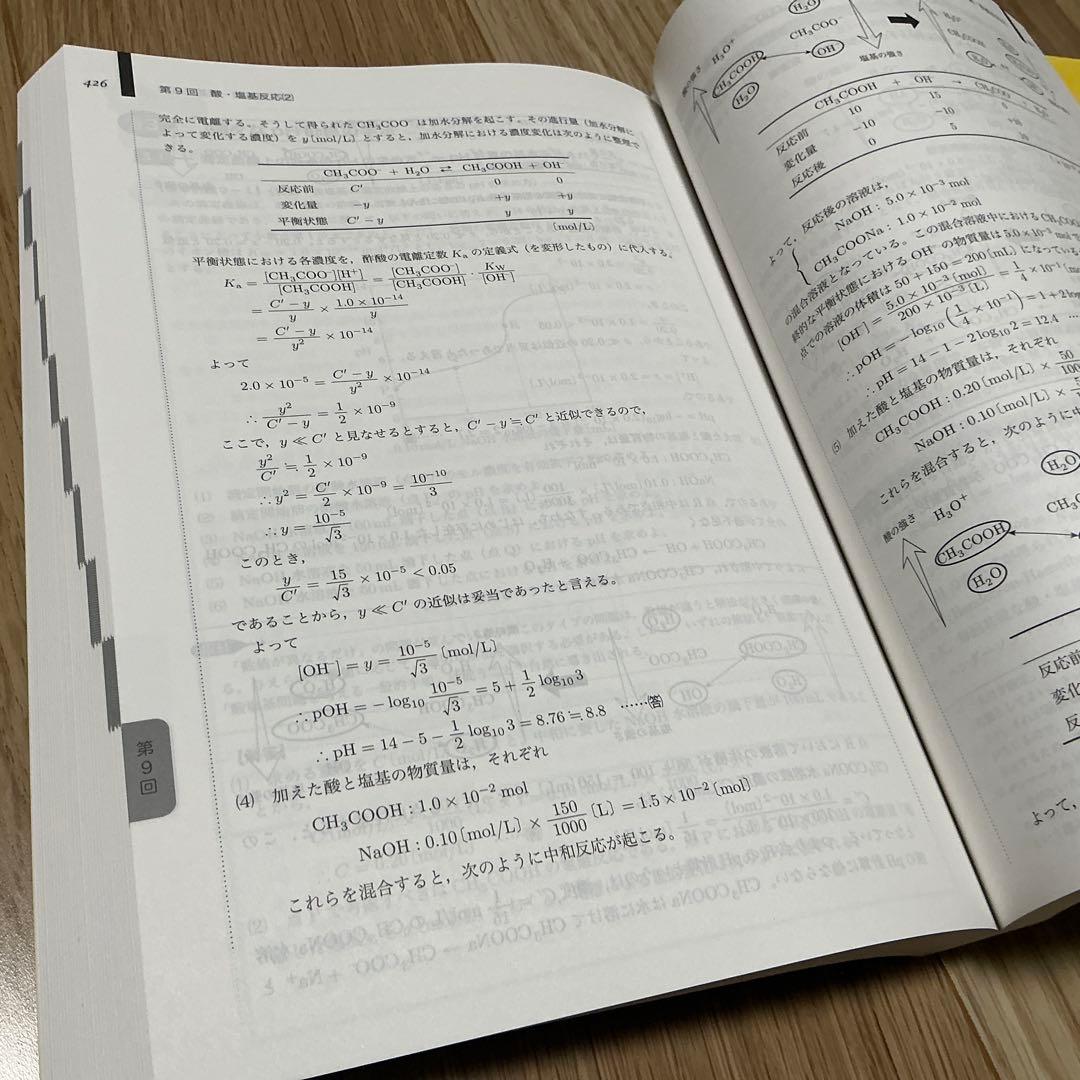 426
第9回 酸・塩基反応(2)
完全に電離する。そうして得られた CH₃COO⁻ は加水分解を起こす。その進行量(加水分解に
よって変化する濃度)を y〔mol/L〕とすると,加水分解における濃度変化は次のように整理で
きる。
CH₃COO⁻ + H₂O ⇄ CH₃COOH + OH⁻
反応前 C′ 0 0
変化量 −y +y +y
平衡状態 C′ − y y y
〔mol/L〕
平衡状態における各濃度を,酢酸の電離定数 Kₐ の定義式(を変形したもの)に代入する。
Kₐ = [CH₃COO⁻][H⁺]/[CH₃COOH] = [CH₃COO⁻]/[CH₃COOH] · K_W/[OH⁻]
= (C′ − y)/y × (1.0 × 10⁻¹⁴)/y
= (C′ − y)/y² × 10⁻¹⁴
よって
2.0 × 10⁻⁵ = (C′ − y)/y² × 10⁻¹⁴
∴ y²/(C′ − y) = 1/2 × 10⁻⁹
ここで,y ≪ C′ と見なせるとすると,C′ − y ≒ C′ と近似できるので,
y²/C′ ≒ 1/2 × 10⁻⁹
∴ y² = C′/2 × 10⁻⁹ = 10⁻¹⁰/3
∴ y = 10⁻⁵/√3
このとき,
y/C′ = 15/√3 × 10⁻⁵ < 0.05
であることから,y ≪ C′ の近似は妥当であったと言える。
よって
[OH⁻] = y = 10⁻⁵/√3〔mol/L〕
∴ pOH = − log₁₀ 10⁻⁵/√3 = 5 + 1/2 log₁₀ 3
∴ pH = 14 − 5 − 1/2 log₁₀ 3 = 8.76 ≒ 8.8 ……(答)
(4) 加えた酸と塩基の物質量は,それぞれ
CH₃COOH : 1.0 × 10⁻² mol
NaOH : 0.10〔mol/L〕× 150/1000〔L〕= 1.5 × 10⁻²〔mol〕
これらを混合すると,次のように中和反応が起こる。
第9回
酸の強さ
H₃O⁺
CH₃COOH
H₂O
H₂O
CH₃COO⁻
OH⁻
塩基の強さ
CH₃COOH + OH⁻ →
反応前 10 15
変化量 −10 −10
反応後 0 5
よって,反応後の溶液は,
NaOH : 5.0 × 10⁻³ mol
CH₃COONa : 1.0 × 10⁻² mol
の混合溶液となっている。この混合溶液中における
終的な平衡状態における OH⁻ の物質量は 5.0 × 10⁻³
点での溶液の体積は 50 + 150 = 200〔mL〕になっている
[OH⁻] = 5.0 × 10⁻³〔mol〕/200 × 10⁻³〔L〕 = 1/4 × 10⁻¹
∴ pOH = − log₁₀ (1/4 × 10⁻¹) = 1 + 2
∴ pH = 14 − 1 − 2 log₁₀ 2 = 12.4 …
(5) 加えた酸と塩基の物質量は,それぞれ
CH₃COOH : 0.20〔mol/L〕× 50/
NaOH : 0.10〔mol/L〕×
これらを混合すると,次のように
酸の強さ
H₃O⁺
H₂O
CH₃COOH
H₂O
反応前
よって,